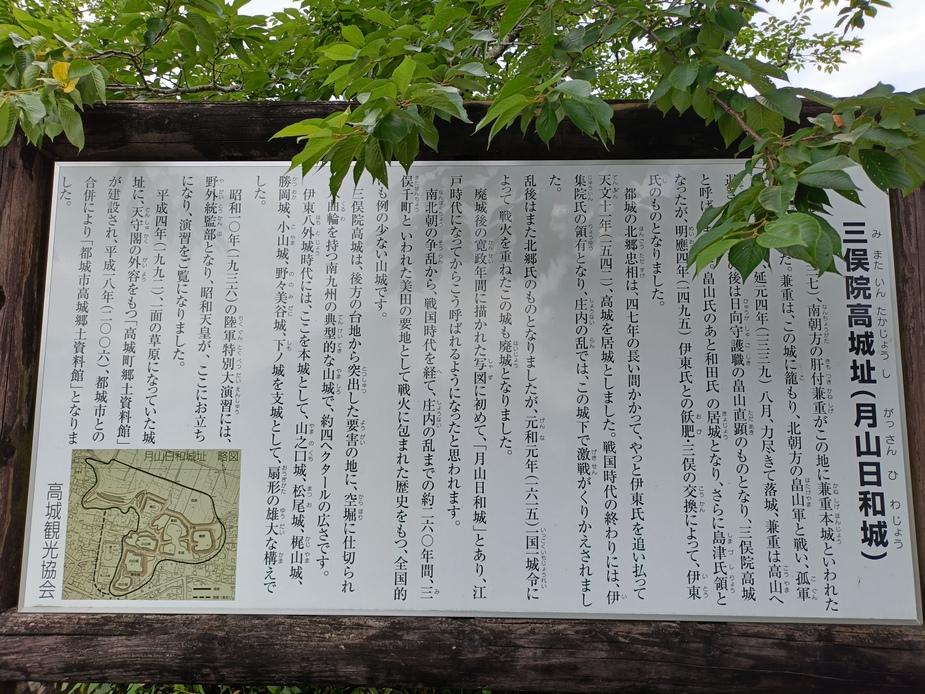 三俣院高城址(月山日和城)
三七)、南朝方の肝付兼重がこの地に兼重本城といわれた
た。兼重は、この城に籠もり、北朝方の畠山軍と戦い、孤軍
延元四年(一三三九)八月、力尽きて落城、兼重は高山へ
後は日向守護職の畠山直顕のものとなり、三俣院高城
と呼ば 。畠山氏のあと和田氏の居城となり、さらに島津氏領と
なったが、明應四年(一四九五)伊東氏との飫肥・三俣の交換によって、伊東
氏のものとなりました。
都城の北郷忠相は、四七年の長い間かかって、やっと伊東氏を追い払って
天文十一年(一五四二)、高城を居城としました。戦国時代の終わりには、伊
集院氏の領有となり、庄内の乱では、この城下で激戦がくりかえされまし
た。
乱後はまた北郷氏のものとなりましたが、元和元年(一六一五)一国一城令に
よって戦火を重ねたこの城も廃城となりました。
廃城後の寛政年間に描かれた写図に初めて、「月山日和城」とあり、江
戸時代になってからこう呼ばれるようになったと思われます。
南北朝の争乱から、戦国時代を経て、庄内の乱までの約二六〇年間、三
俣千町といわれた美田の要地として戦火に包まれた歴史をもつ、全国的
も例の少ない山城です。
三俣院高城は、後方の台地から突出した要害の地に、空堀に仕切られ
曲輪を持つ南九州の典型的な山城で、約四ヘクタールの広さです。
伊東八外城時代には、ここを本城として、山之口城、松尾城、梶山城、
勝岡城、小山城、野々美谷城、下ノ城を支城として、扇形の雄大な構えで
した。
昭和一〇年(一九三六)の陸軍特別大演習には、
野外統監部となり、昭和天皇が、ここにお立ち
になり、演習をご覧になりました。
平成四年(一九九二)、一面の草原になっていた城
址に、天守閣の外容をもつ「高城町郷土資料館」
が建設され、平成一八年(二〇〇六)、都城市との
合併により「都城市高城郷土資料館」となりま
した。
月山日和城址 略図
高城観光協会